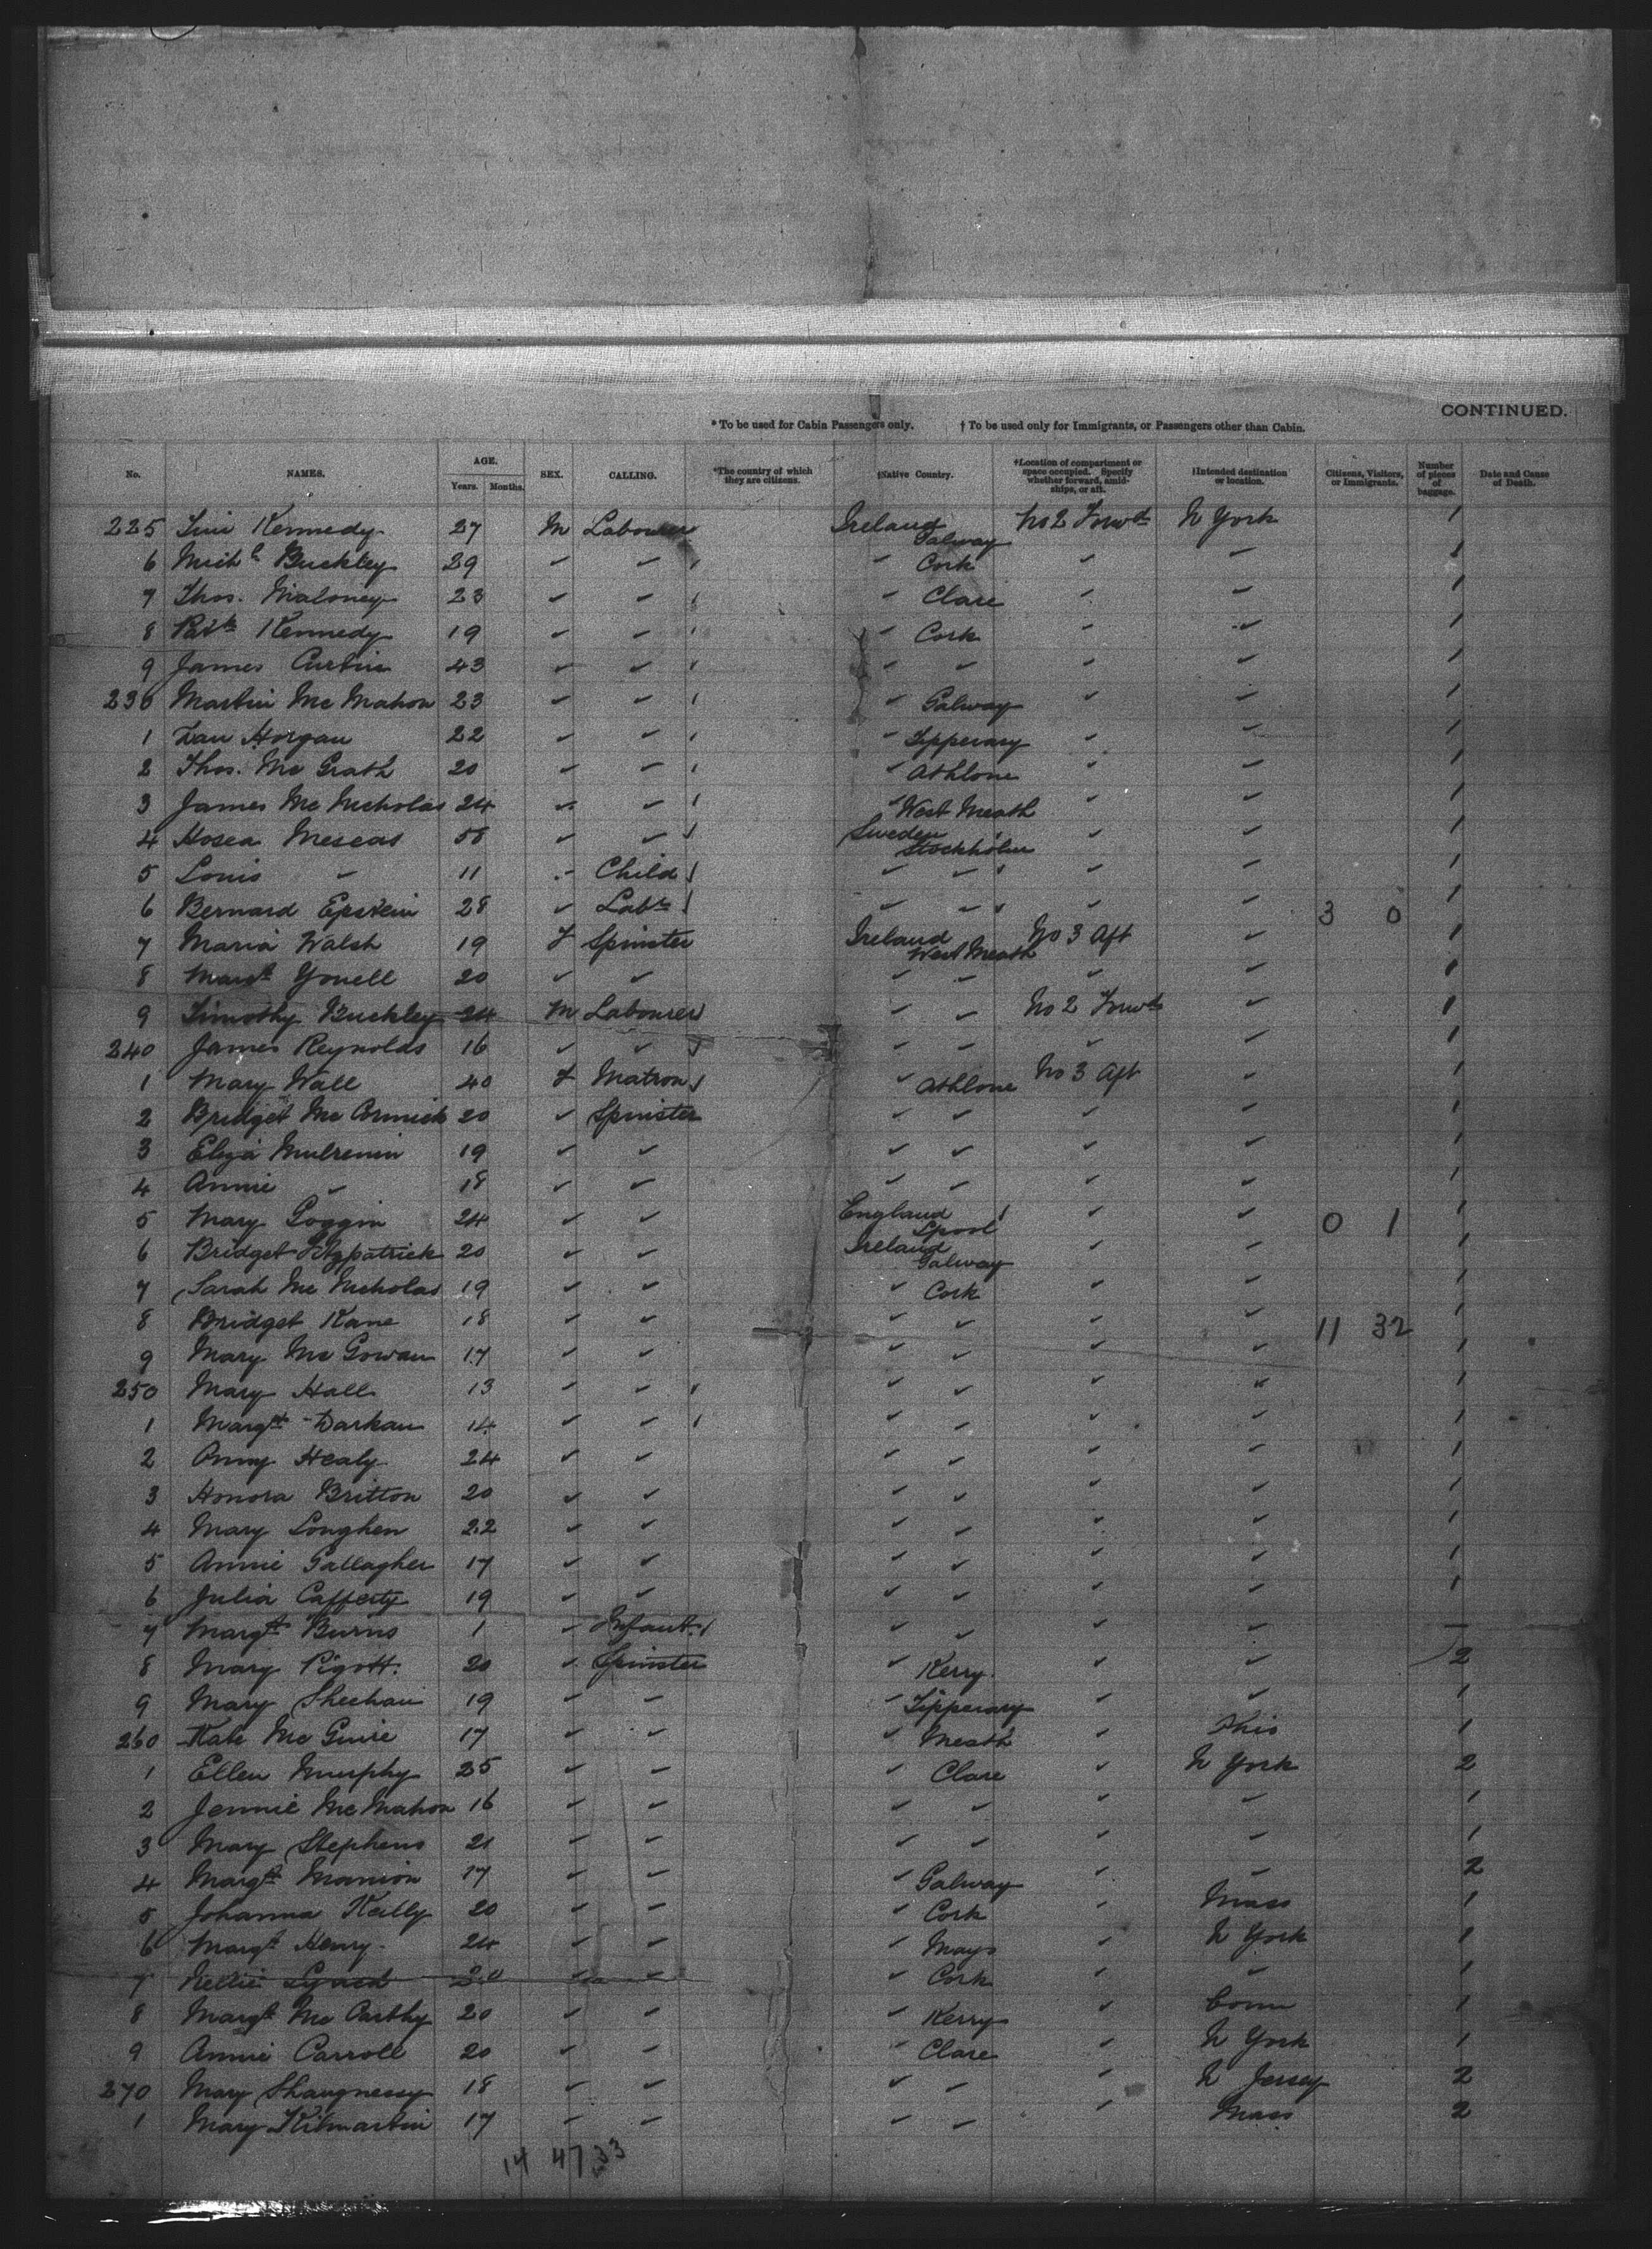 CONTINUED.
* To be used for Cabin Passengers only. † To be used only for Immigrants, or Passengers other than Cabin.
No. NAMES. AGE. Years. Months. SEX. CALLING. *The country of which they are citizens. †Native Country. †Location of compartment or space occupied. Specify whether forward, amidships, or aft. †Intended destination or location. Citizens, Visitors, or Immigrants. Number of pieces of baggage. Date and Cause of Death.
225 Kennedy 27 M Labourer Ireland Galway No 2 Forwd N York 1
6 Michl Buckley 29 " " " Cork " " 1
7 Thos. Maloney 23 " " " Clare " " 1
8 Patk Kennedy 19 " " " Cork " " 1
9 James Curtin 43 " " " " " " 1
230 Martin Mc Mahon 23 " " " Galway " " 1
1 Dan Horgan 22 " " " Tipperary " " 1
2 Thos. Mc Grath 20 " " " Athlone " " 1
3 James Mc Nicholas 24 " " " West Meath " " 1
4 Hosea Meseas 58 " " Sweden Stockholm " " 1
5 Louis " 11 " Child " " " " 1
6 Bernard Epstein 28 " Labr " " " " 3 0 1
7 Maria Walsh 19 F Spinster Ireland West Meath No 3 Aft " 1
8 Margt Yonell 20 " " " " " " 1
9 Timothy Buckley 24 M Labourer " " No 2 Forwd " 1
240 James Reynolds 16 " " " " " " 1
1 Mary Wall 40 F Matron " Athlone No 3 Aft " 1
2 Bridget Mc Cormick 20 " Spinster " " " " 1
3 Eliza Mulrenin 19 " " " " " " 1
4 Annie " 18 " " " " " " 1
5 Mary Goggin 24 " " England Lpool " " 0 1 1
6 Bridget Fitzpatrick 20 " " Ireland Galway " " 1
7 Sarah Mc Nicholas 19 " " " Cork " " 1
8 Bridget Kane 18 " " " " " " 11 32 1
9 Mary Mc Gowan 17 " " " " " " 1
250 Mary Hall 13 " " " " " " 1
1 Margt Darkan 14 " " " " " " 1
2 Anny Healy 24 " " " " " " 1
3 Honora Britton 20 " " " " " " 1
4 Mary Loughen 22 " " " " " " 1
5 Annie Gallagher 17 " " " " " " 1
6 Julia Cafferty 19 " " " " " " 1
7 Margt Burns 1 " Infant " " " " —
8 Mary Pigott. 20 " Spinster " Kerry " " 2
9 Mary Sheehan 19 " " " Tipperary " " 1
260 Kate Mc Guire 17 " " " Meath " Ohio 1
1 Ellen Murphy 25 " " " Clare " N York 2
2 Jennie Mc Mahon 16 " " " " " " 1
3 Mary Stephens 21 " " " " " " 1
4 Margt Mannion 17 " " " Galway " " 2
5 Johanna Kelly 20 " " " Cork " Mass 1
6 Margt Henry 24 " " " Mayo " N York 1
7 Nellie 20 " " " Cork " " 1
8 Margt Mc Carthy 20 " " " Kerry " Conn 1
9 Annie Carroll 20 " " " Clare " N York 1
270 Mary Shaugnessy 18 " " " " " N Jersey 2
1 Mary Kilmartin 17 " " " " " Mass 2
14 47 33